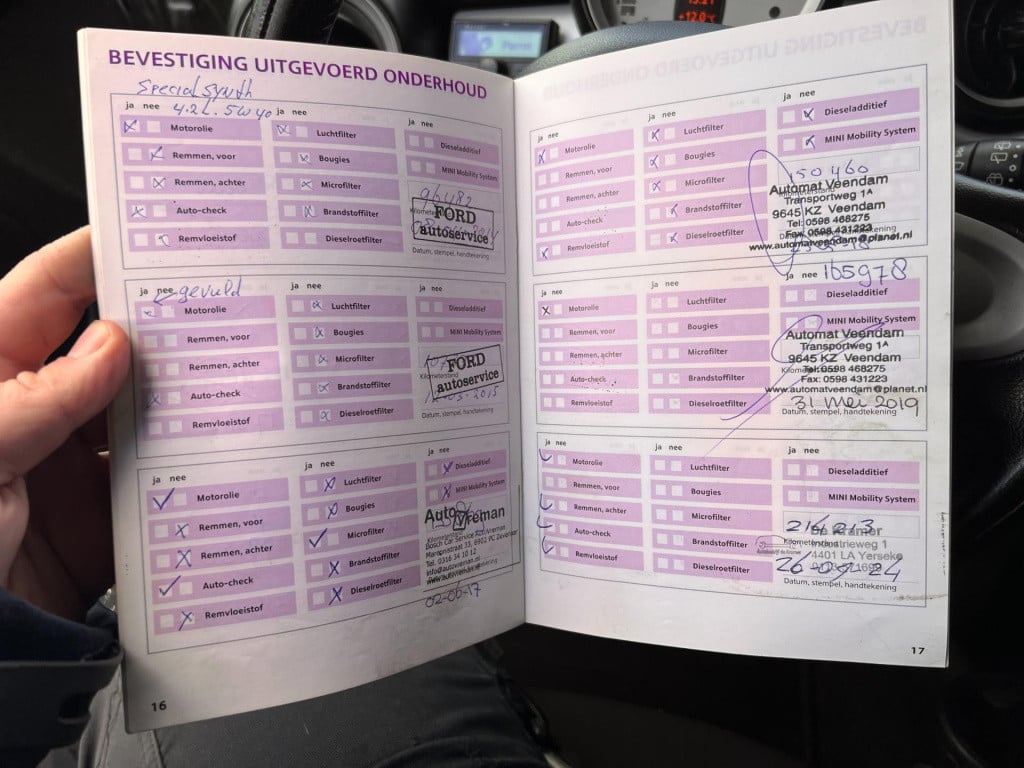 BEVESTIGING UITGEVOERD ONDERHOUD
Special synth
4.2 L. 5W40
ja nee
Motorolie
Remmen, voor
Remmen, achter
Auto-check
Remvloeistof
ja nee
Luchtfilter
Bougies
Microfilter
Brandstoffilter
Dieselroetfilter
ja nee
Dieseladditief
MINI Mobility System
96482
FORD
autoservice
Datum, stempel, handtekening
ja nee
gevuld
Motorolie
Remmen, voor
Remmen, achter
Auto-check
Remvloeistof
ja nee
Luchtfilter
Bougies
Microfilter
Brandstoffilter
Dieselroetfilter
ja nee
Dieseladditief
MINI Mobility System
Kilometerstand
FORD
autoservice
2015
Datum, stempel, handtekening
ja nee
Motorolie
Remmen, voor
Remmen, achter
Auto-check
Remvloeistof
ja nee
Luchtfilter
Bougies
Microfilter
Brandstoffilter
Dieselroetfilter
ja nee
Dieseladditief
MINI Mobility System
Auto Vreman
Bosch Car Service Auto Vreman
Tel. 0316 34 10 12
info@autovreman.nl
www.autovreman.nl
02-06-17
16
ja nee
Motorolie
Remmen, voor
Remmen, achter
Auto-check
Remvloeistof
ja nee
Luchtfilter
Bougies
Microfilter
Brandstoffilter
Dieselroetfilter
ja nee
Dieseladditief
MINI Mobility System
150460
Automat Veendam
Transportweg 1A
9645 KZ Veendam
Tel: 0598 468275
Fax: 0598 431223
www.automatveendam@planet.nl
ja nee
Motorolie
Remmen, voor
Remmen, achter
Auto-check
Remvloeistof
ja nee
Luchtfilter
Bougies
Microfilter
Brandstoffilter
Dieselroetfilter
ja nee
165978
Dieseladditief
MINI Mobility System
Automat Veendam
Transportweg 1A
9645 KZ Veendam
Tel: 0598 468275
Fax: 0598 431223
www.automatveendam@planet.nl
31 mei 2019
Datum, stempel, handtekening
ja nee
Motorolie
Remmen, voor
Remmen, achter
Auto-check
Remvloeistof
ja nee
Luchtfilter
Bougies
Microfilter
Brandstoffilter
Dieselroetfilter
ja nee
Dieseladditief
MINI Mobility System
216213
Kramer
Kilometerstand
Industrieweg 1
4401 LA Yerseke
Datum, stempel, handtekening
17
+12.0°C